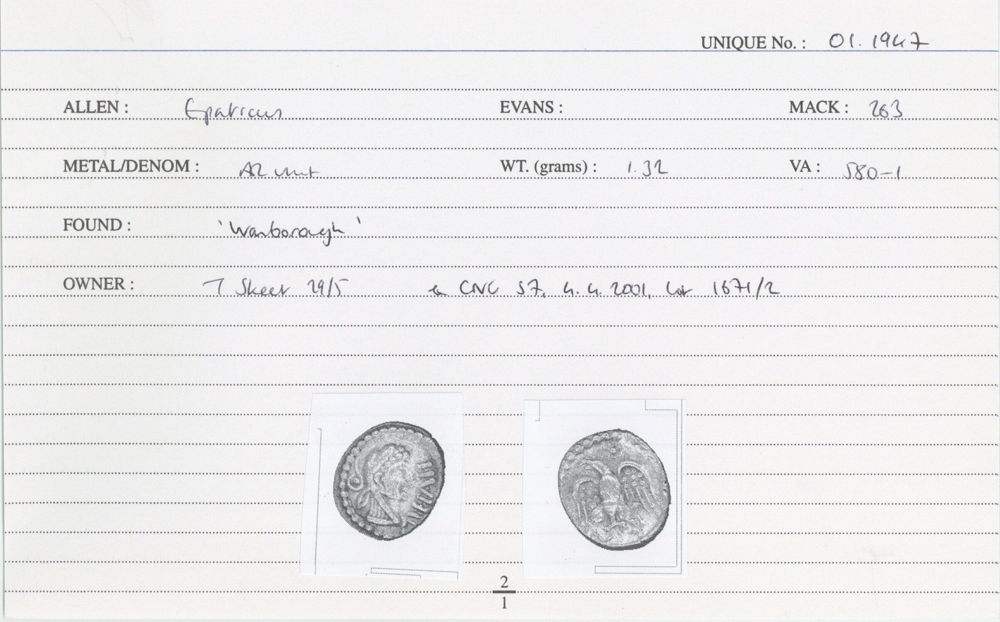 UNIQUE No. : 01.1947
ALLEN : Epaticus EVANS : MACK : 263
METAL/DENOM : AR unit WT. (grams) : 1.32 VA : 580-1
FOUND : 'Wanborough'
OWNER : T Skeet 29/5 ex CNG 57, 4.4.2001, Lot 1671/2
2
1